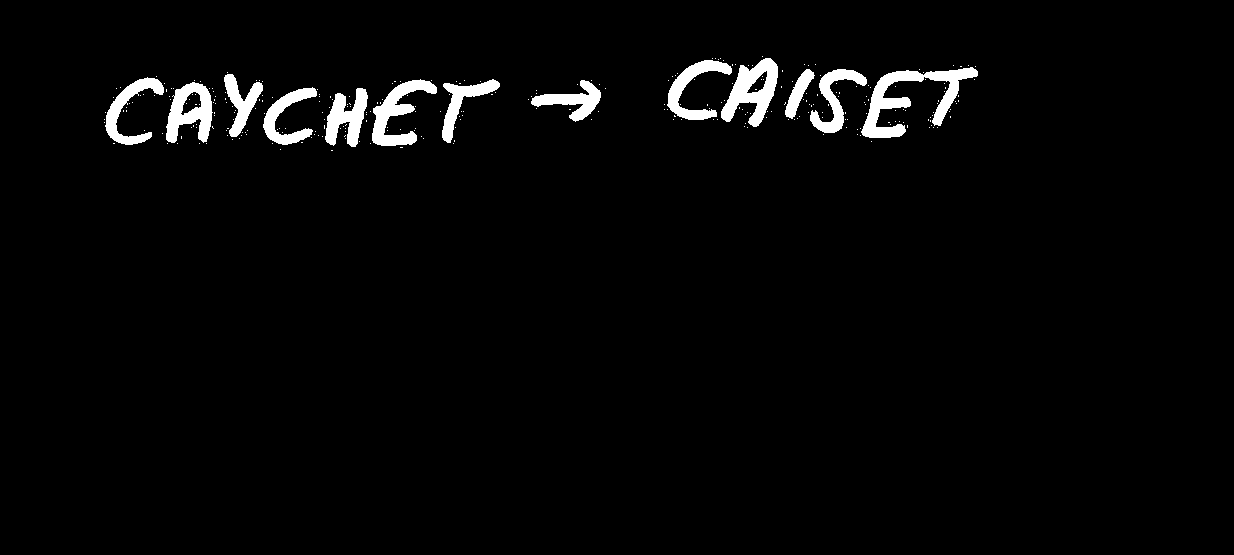 CAYCHET → CAISET